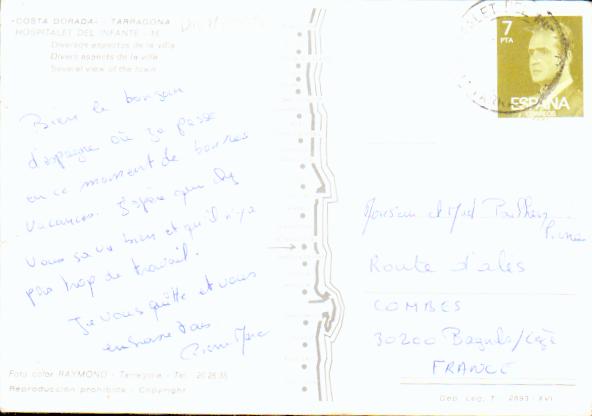 «COSTA DORADA» - TARRAGONA
HOSPITALET DEL INFANTE - 16
Diversos aspectos de la villa
Divers aspects de la villa
Several view of the town
Bien le bonjour
d'espagne où je passe
en ce moment de bonnes
vacances. J'espère que chez
vous ça va bien et qu'il n'y a
pas trop de travail.
Je vous quitte et vous
embrasse tous
Pierre Marc
Foto color RAYMOND - Tarragona - Tel.
Reproducción prohibida - Copyright
7
PTA
ESPAÑA
CORREOS
Monsieur et Mad
Route d'ales
COMBES
30200 Bagnols/Cèze
FRANCE
Dep. Leg. T - 2893 - XVI